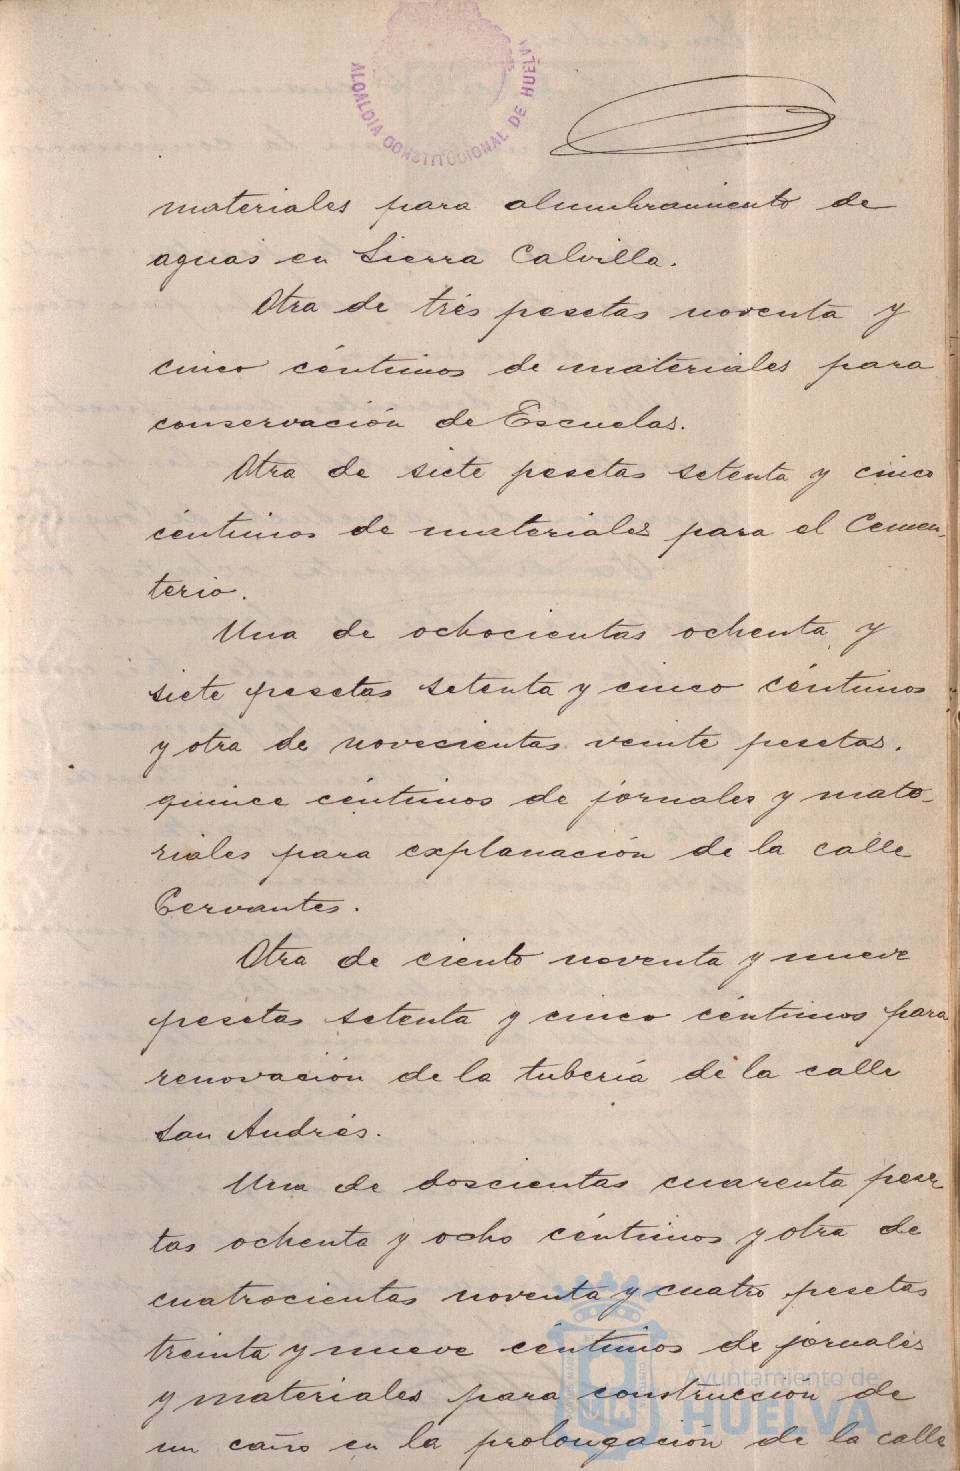 ALCALDIA CONSTITUCIONAL DE HUELVA
materiales para alumbramiento de
aguas en Sierra Calvilla.
Otra de trés pesetas noventa y
cinco céntimos de materiales para
conservación de Escuelas.
Otra de siete pesetas setenta y cinco
céntimos de materiales para el Cemen-
terio.
Una de ochocientas ochenta y
siete pesetas setenta y cinco céntimos
y otra de novecientas veinte pesetas.
quince céntimos de jornales y mate-
riales para explanación de la calle
Cervantes.
Otra de ciento noventa y nueve
pesetas setenta y cinco céntimos para
renovación de la tubería de la calle
San Andrés.
Una de doscientas cuarenta pese-
tas ochenta y ocho céntimos y otra de
cuatrocientas noventa y cuatro pesetas
treinta y nueve céntimos de jornales
y materiales para construcción de
un caño en la prolongación de la calle
Ayuntamiento de
HUELVA